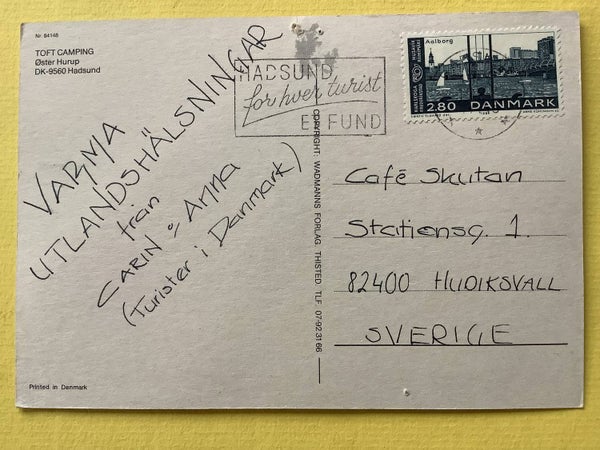 Nr. 84148
TOFT CAMPING
Øster Hurup
DK-9560 Hadsund
VARMA
UTLANDSHÄLSNINGAR
från
CARIN o ANNA
(Turister i Danmark)
Printed in Denmark
HADSUND
for hver turist
ET FUND
COPYRIGHT: WADMANNS FORLAG. THISTED. TLF. 07-92 31 66
Aalborg
2.80 DANMARK
Café Skutan
Stationsg. 1.
82400 HUDIKSVALL
SVERIGE